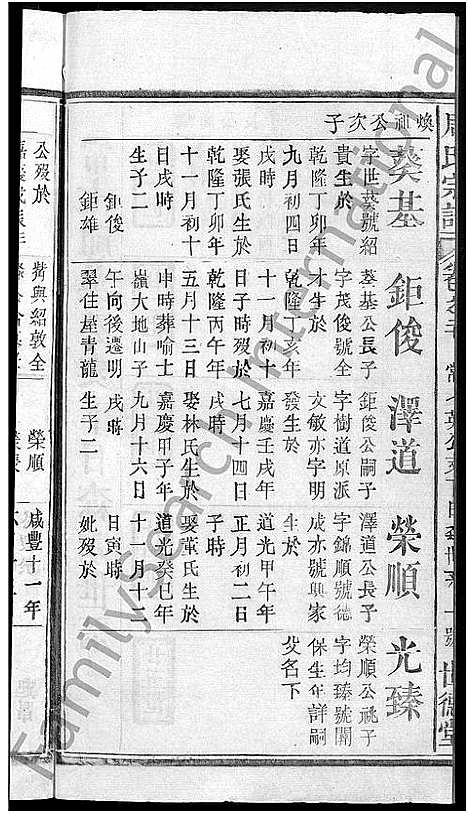 煥祖公次子
葵基
字世葵號紹
貴生於
乾隆丁卯年
九月初四
戌時
娶張氏生於
乾隆丁卯年
十一月初十
日戌時
生子二
鉅俊
鉅雄
鉅俊
葵基公長子
字茂俊號全
才生於
乾隆辛亥年
十一月初十
日子時歿於
乾隆丙午年
五月十三日
申時葬喻士
嶺大地山子
午向後遷明
翠住屋青龍
澤道
鉅俊公嗣子
字樹道原派
文敏亦字明
發生於
嘉慶壬戌年
七月十四日
戌時
娶林氏生於
嘉慶甲子年
九月十六日
戌時
生子二
榮順
澤道公長子
字錦順號德
成亦號興家
生於
道光甲午年
正月初二日
子時
娶董氏生於
道光癸巳年
十一月十二
日寅時
妣歿於
光臻
榮順公祧子
字均臻號開
保生年詳嗣
父名下
世德堂
周氏宗譜
公歿於
榮順
咸豐十一年